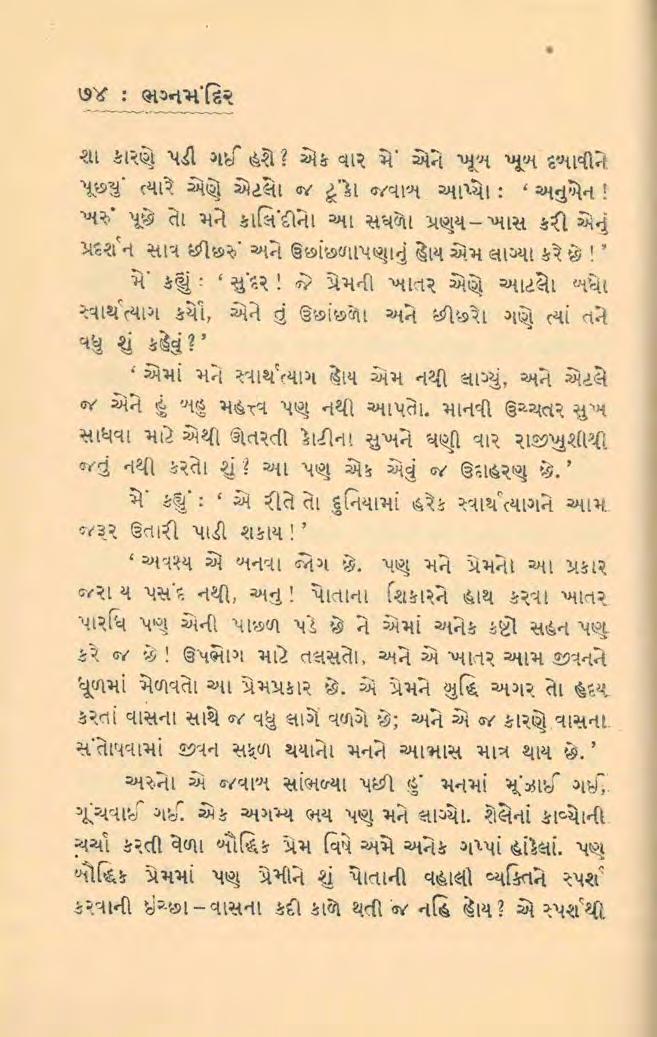 ૭૪ : ભગ્નમંદિર
શા કારણે પડી ગઈ હશે? એક વાર મેં એને ખૂબ ખૂબ દબાવીને
પૂછ્યું ત્યારે એણે એટલો જ ટૂંકો જવાબ આપ્યો: ‘અનુબેન!
ખરું પૂછે તો મને કાલિંદીનો આ સઘળો પ્રણય–ખાસ કરી એનું
પ્રદર્શન સાવ છીછરું અને ઉછાંછળાપણાનું હોય એમ લાગ્યા કરે છે!’
મેં કહ્યું: ‘સુંદર! જે પ્રેમની ખાતર એણે આટલો બધો
સ્વાર્થત્યાગ કર્યો, એને તું ઉછાંછળો અને છીછરો ગણે ત્યાં તને
વધુ શું કહેવું?’
‘એમાં મને સ્વાર્થત્યાગ હોય એમ નથી લાગ્યું, અને એટલે
જ એને હું બહુ મહત્ત્વ પણ નથી આપતો. માનવી ઉચ્ચતર સુખ
સાધવા માટે એથી ઊતરતી કોટીના સુખને ઘણી વાર રાજીખુશીથી
જતું નથી કરતો શું? આ પણ એક એવું જ ઉદાહરણ છે.’
મેં કહ્યું: ‘એ રીતે તો દુનિયામાં હરેક સ્વાર્થત્યાગને આમ
જરૂર ઉતારી પાડી શકાય!’
‘અવશ્ય એ બનવા જોગ છે. પણ મને પ્રેમનો આ પ્રકાર
જરા ય પસંદ નથી, અનુ! પોતાના શિકારને હાથ કરવા ખાતર
પારધિ પણ એની પાછળ પડે છે ને એમાં અનેક કષ્ટો સહન પણ
કરે જ છે! ઉપભોગ માટે તલસતો, અને એ ખાતર આમ જીવનને
ધૂળમાં મેળવતો આ પ્રેમપ્રકાર છે. એ પ્રેમને બુદ્ધિ અગર તો હૃદય
કરતાં વાસના સાથે જ વધુ લાગે વળગે છે; અને એ જ કારણે વાસના
સંતોષવામાં જીવન સફળ થયાનો મનને આભાસ માત્ર થાય છે.’
અરુનો એ જવાબ સાંભળ્યા પછી હું મનમાં મૂંઝાઈ ગઈ,
ગૂંચવાઈ ગઈ. એક અગમ્ય ભય પણ મને લાગ્યો. શેલેનાં કાવ્યોની
ચર્ચા કરતી વેળા બૌદ્ધિક પ્રેમ વિષે અમે અનેક ગપ્પાં હાંકેલાં. પણ
બૌદ્ધિક પ્રેમમાં પણ પ્રેમીને શું પોતાની વહાલી વ્યક્તિને સ્પર્શ
કરવાની ઇચ્છા–વાસના કદી કાળે થતી જ નહિ હોય? એ સ્પર્શથી